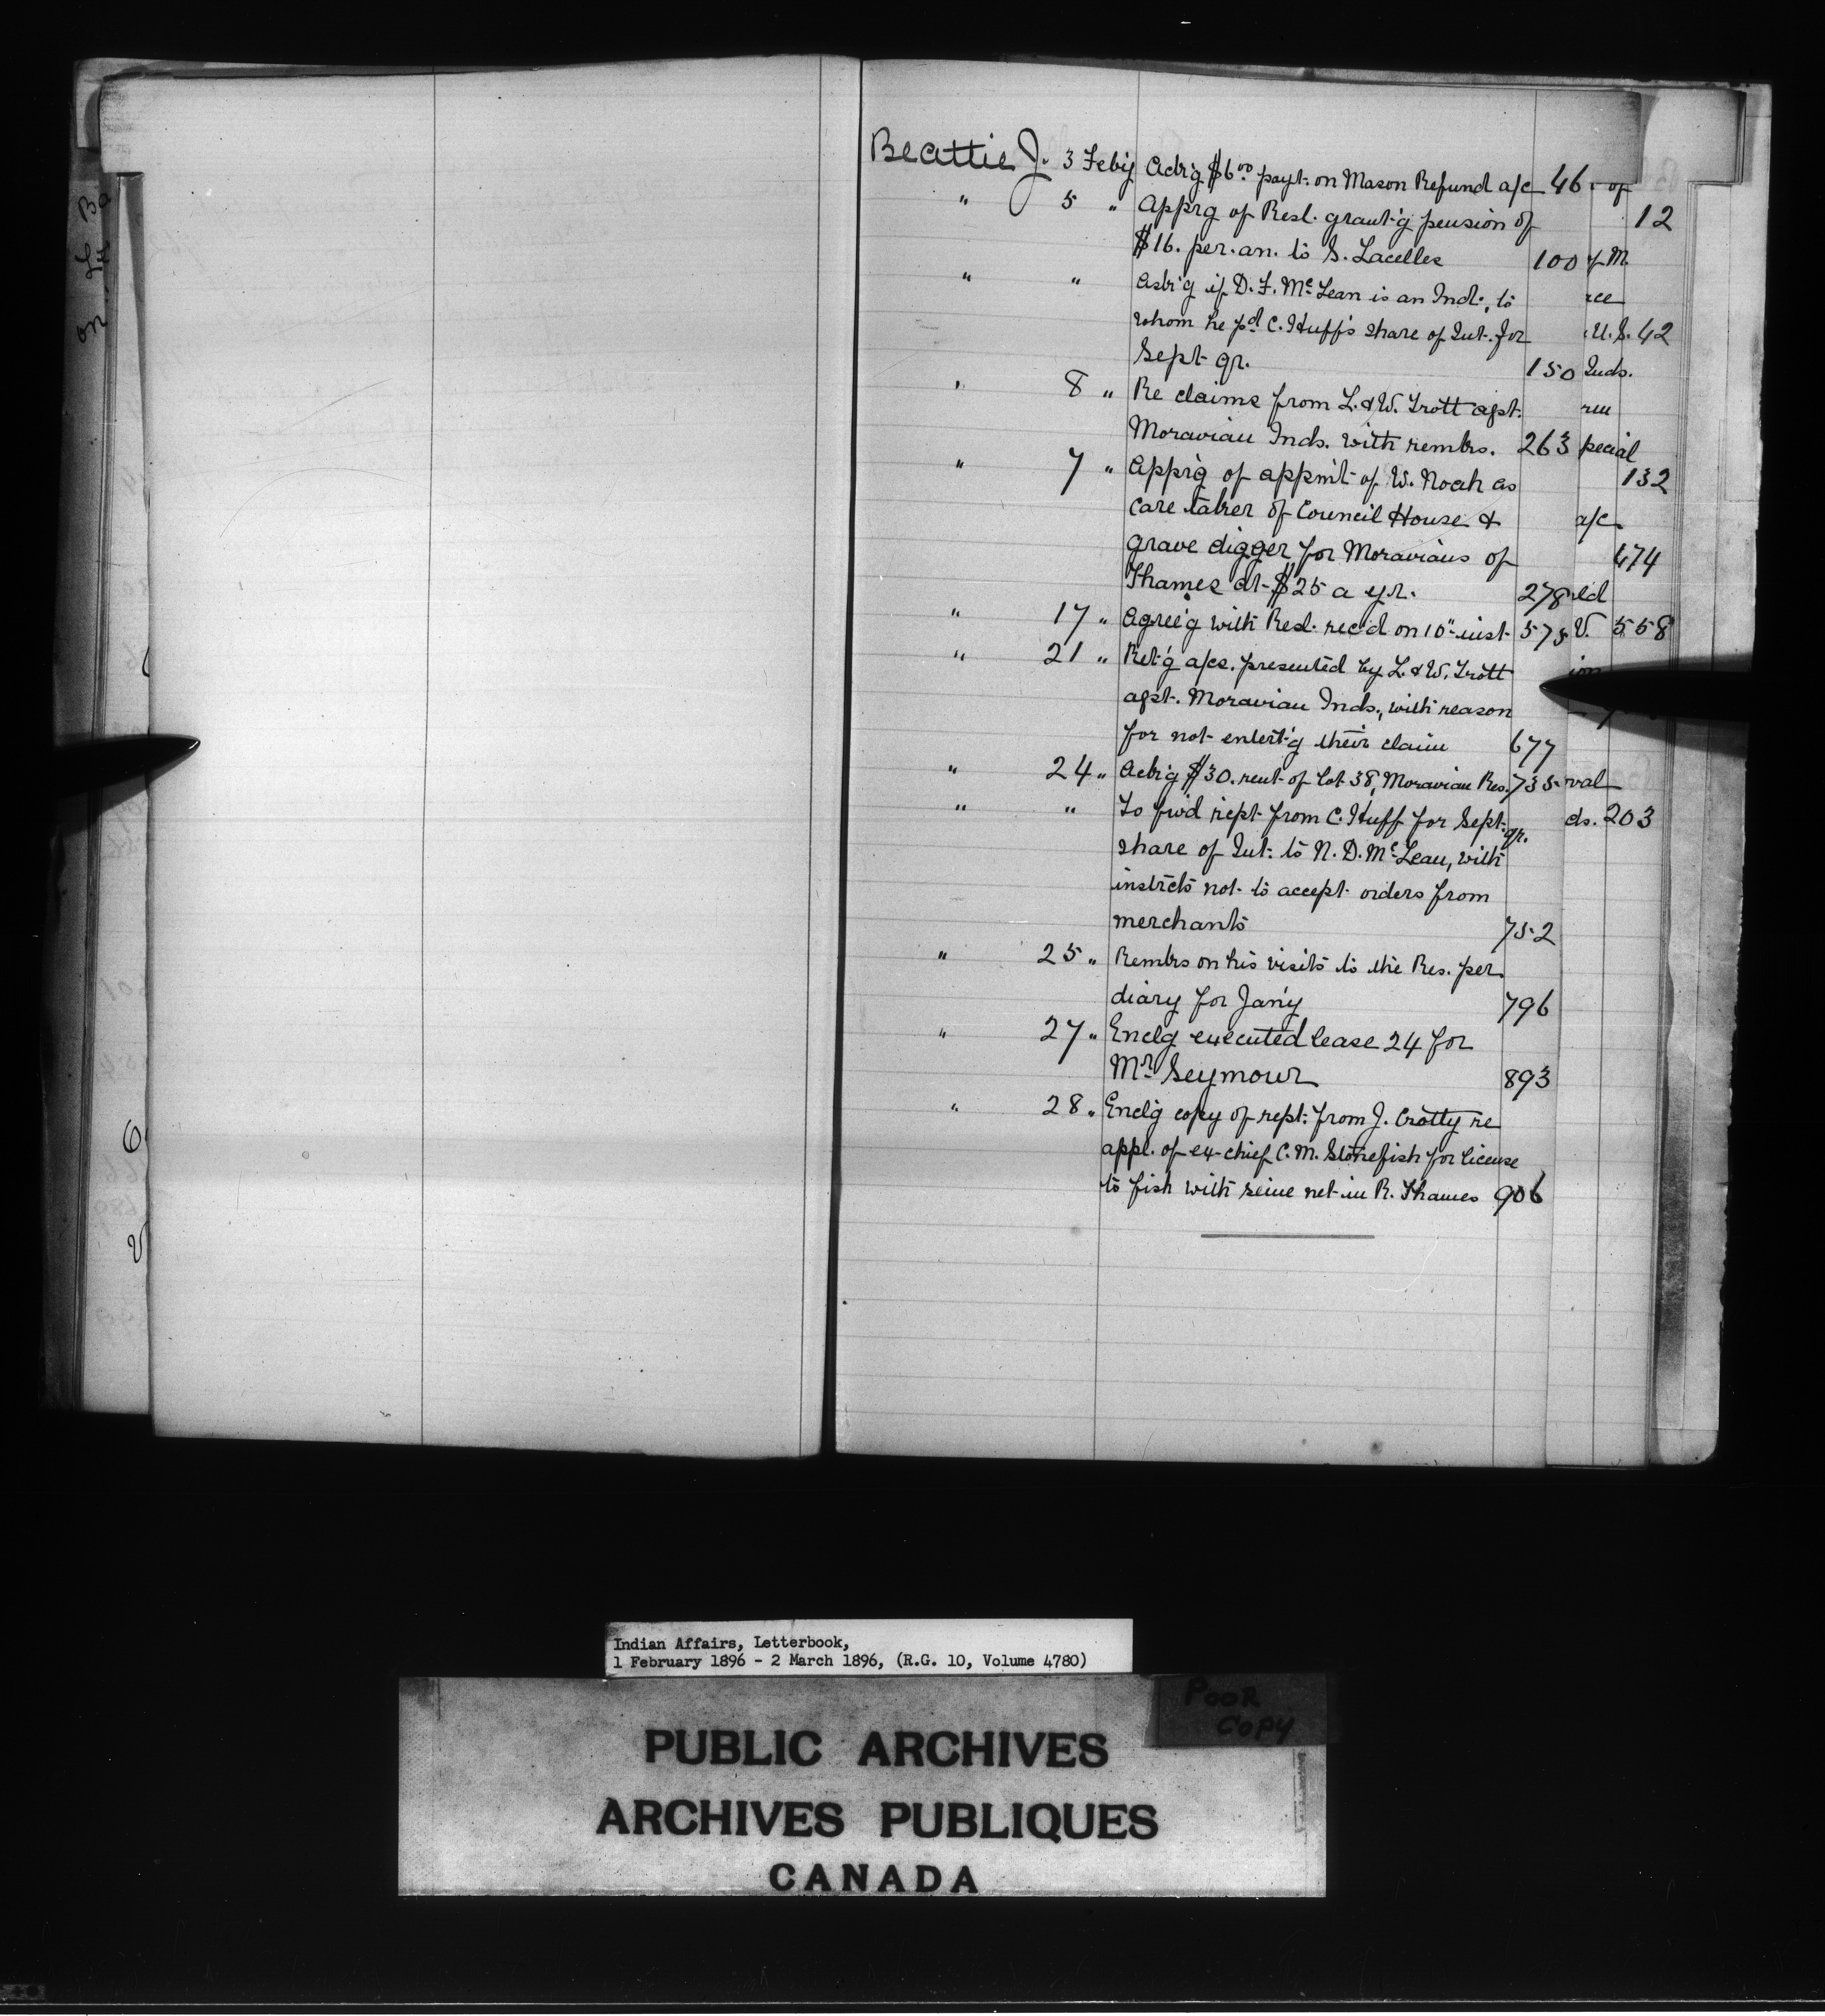 Beattie J. 3 Feby Ackg $6.00 payt. on Mason Refund a/c 46
" 5 " Apprg of Resl. grant'g pension of
$16. per. an. to S. Lacelles 100
" " Ask'g if D. F. McLean is an Ind., to
whom he pd C. Huff's share of Int. for
Sept qr. 150
" 8 " Re claims from L. & W. Trott agst.
Moravian Inds. with remks. 263
" 7 " Apprg of appmt of W. Noah as
care taker of Council House &
grave digger for Moravians of
Thames at $25 a yr. 278
" 17 " Agree'g with Resl. rec'd on 10" inst 575
" 21 " Ret'g a/cs. presented by L. & W. Trott
agst. Moravian Inds., with reason
for not entert'g their claim 677
" 24 " Ackg $30. rent of lot 38, Moravian Res. 735
" " To fwd rept from C. Huff for Sept. qr.
share of Int: to N. D. McLean, with
instrcts not to accept orders from
merchants 752
" 25 " Remks on his visits to the Res. per
diary for Jan'y 796
" 27 " Enclg executed lease 24 for
Mr. Seymour 893
" 28 " Encl'g copy of rept: from J. Crotty re
appl. of ex-chief C. M. Stonefish for license
to fish with seine net in R. Thames 906
of
12
of M.
U. S. 42
Inds.
pecial
132
a/c
474
V. 558
val
ds. 203
Indian Affairs, Letterbook,
1 February 1896 - 2 March 1896, (R.G. 10, Volume 4780)
POOR
COPY
PUBLIC ARCHIVES
ARCHIVES PUBLIQUES
CANADA